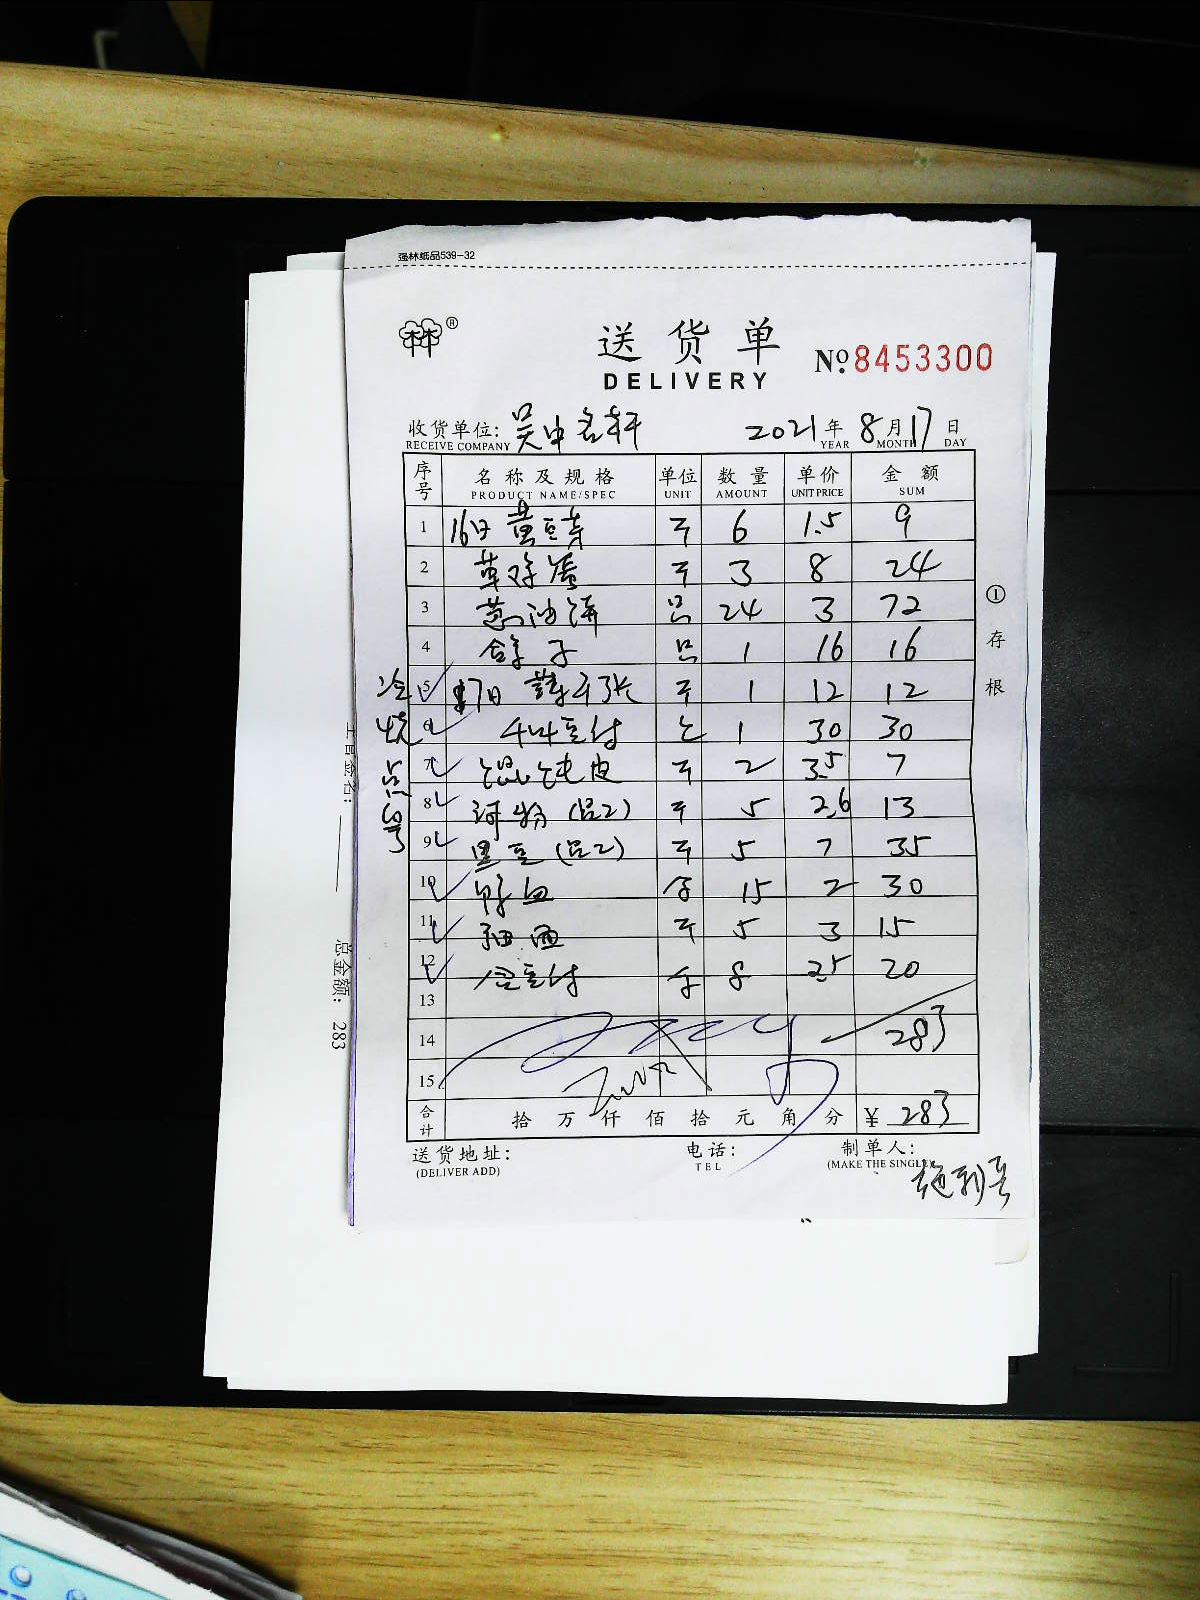 强林纸品539-32
林林®
送货单
DELIVERY
№ 8453300
收货单位: 吴中名轩 2021年8月17日
RECEIVE COMPANY YEAR MONTH DAY
序号 名称及规格 单位 数量 单价 金额
PRODUCT NAME/SPEC UNIT AMOUNT UNIT PRICE SUM
1 16日 黄豆芽 斤 6 1.5 9
2 草鸡蛋 斤 3 8 24
3 葱油饼 只 24 3 72
4 鸽子 只 1 16 16
5 17日 薄千张 斤 1 12 12
6 豆付 1 30 30
7 馄饨皮 斤 2 3.5 7
8 河粉(品2) 斤 5 2.6 13
9 黑豆(品2) 斤 5 7 35
10 鸭血 盒 15 2 30
11 细面 斤 5 3 15
12 豆付 盒 8 2.5 20
13
14 283
15
合计 拾 万 仟 佰 拾 元 角 分 ¥ 283
送货地址: 电话: 制单人:
(DELIVER ADD) TEL (MAKE THE SINGLE)
①存根
主管签名:
总金额: 283